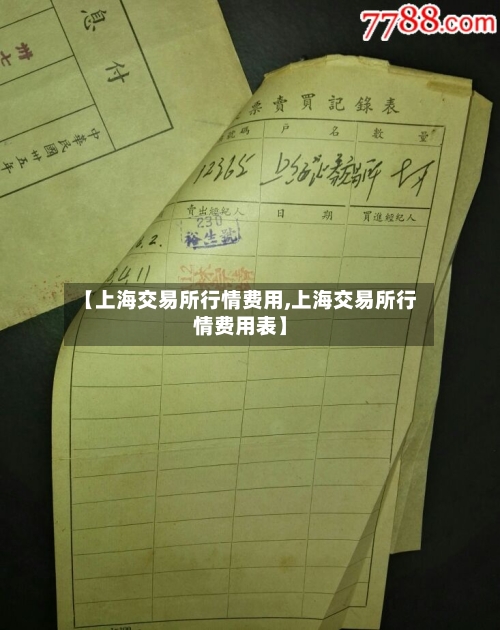 7788.com
息付
卅七
中華民國卅五年
票賣買記錄表
號碼 戶名 數量
12365 上海證券交易所
賣出經紀人 日期 買進經紀人
230
裕生號
.2.
1411
【上海交易所行情费用,上海交易所行
情费用表】